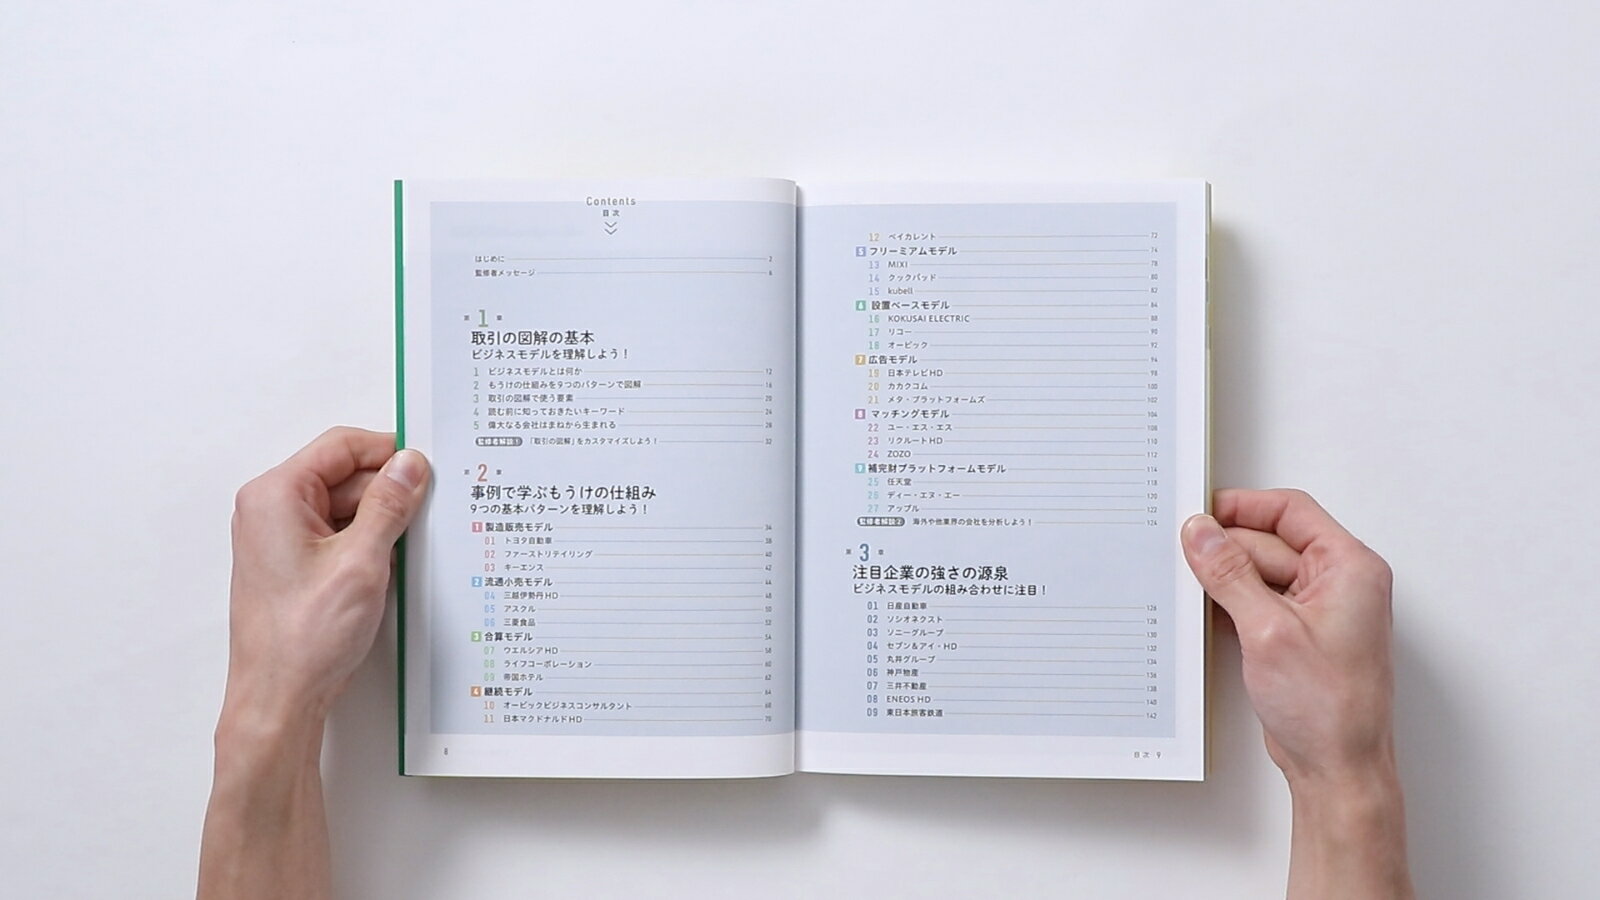 Contents
目次
はじめに 2
監修者メッセージ 6
第1章
取引の図解の基本
ビジネスモデルを理解しよう！
1 ビジネスモデルとは何か 12
2 もうけの仕組みを9つのパターンで図解 16
3 取引の図解で使う要素 20
4 読む前に知っておきたいキーワード 24
5 偉大なる会社はまねから生まれる 28
監修者解説① 「取引の図解」をカスタマイズしよう！ 32
第2章
事例で学ぶもうけの仕組み
9つの基本パターンを理解しよう！
1 製造販売モデル 34
01 トヨタ自動車 38
02 ファーストリテイリング 40
03 キーエンス 42
2 流通小売モデル 44
04 三越伊勢丹HD 48
05 アスクル 50
06 三菱食品 52
3 合算モデル 54
07 ウエルシアHD 58
08 ライフコーポレーション 60
09 帝国ホテル 62
4 継続モデル 64
10 オービックビジネスコンサルタント 68
11 日本マクドナルドHD 70
8
12 ベイカレント 72
5 フリーミアムモデル 74
13 MIXI 78
14 クックパッド 80
15 kubell 82
6 設置ベースモデル 84
16 KOKUSAI ELECTRIC 88
17 リコー 90
18 オービック 92
7 広告モデル 94
19 日本テレビHD 98
20 カカクコム 100
21 メタ・プラットフォームズ 102
8 マッチングモデル 104
22 ユー・エス・エス 108
23 リクルートHD 110
24 ZOZO 112
9 補完財プラットフォームモデル 114
25 任天堂 118
26 ディー・エヌ・エー 120
27 アップル 122
監修者解説② 海外や他業界の会社を分析しよう！ 124
第3章
注目企業の強さの源泉
ビジネスモデルの組み合わせに注目！
01 日産自動車 126
02 ソシオネクスト 128
03 ソニーグループ 130
04 セブン＆アイ・HD 132
05 丸井グループ 134
06 神戸物産 136
07 三井不動産 138
08 ENEOS HD 140
09 東日本旅客鉄道 142
目次 9